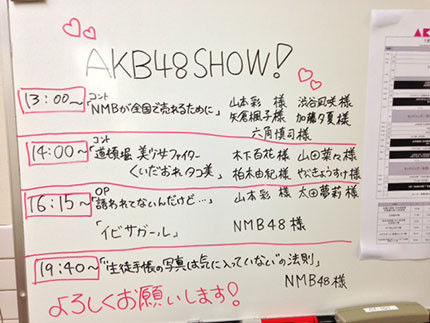 AKB48SHOW!
13:00〜 コント
「NMBが全国で売れるために」 山本彩 様 渋谷凪咲様
矢倉楓子様 加藤夕夏様
六角慎司様
14:00〜 コント
「道頓堀 美少女ファイター 木下百花様 山田菜々様
くいだおれタコ美」 柏木由紀様 やべきょうすけ様
16:15〜 OP
「誘われてないんだけど…」 山本彩 様 太田夢莉様
「イビサガール」 NMB48 様
19:40〜 「"生徒手帳の写真は気に入っていない"の法則」
NMB48様
よろしくお願いします!